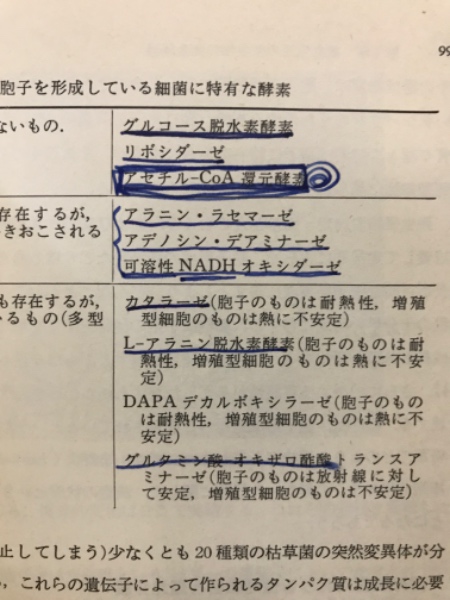 99
胞子を形成している細菌に特有な酵素
ないもの．
グルコース脱水素酵素
リボシダーゼ
アセチル-CoA 還元酵素
存在するが，
きおこされる
アラニン・ラセマーゼ
アデノシン・デアミナーゼ
可溶性 NADH オキシダーゼ
も存在するが，
いるもの(多型
カタラーゼ(胞子のものは耐熱性，増殖
型細胞のものは熱に不安定)
L-アラニン脱水素酵素(胞子のものは耐
熱性，増殖型細胞のものは熱に不安
定)
DAPA デカルボキシラーゼ(胞子のもの
は耐熱性，増殖型細胞のものは熱に不
安定)
グルタミン酸-オキザロ酢酸トランスア
ミナーゼ(胞子のものは放射線に対し
て安定，増殖型細胞のものは不安定)
止してしまう)少なくとも 20 種類の枯草菌の突然変異体が分
，これらの遺伝子によって作られるタンパク質は成長に必要